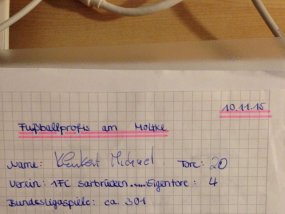 10.11.15
Fußballprofis am Moltke
Name: Michael Tore: 20
Verein: 1FC Saarbrücken.....Eigentore: 4
Bundesligaspiele: ca. 301